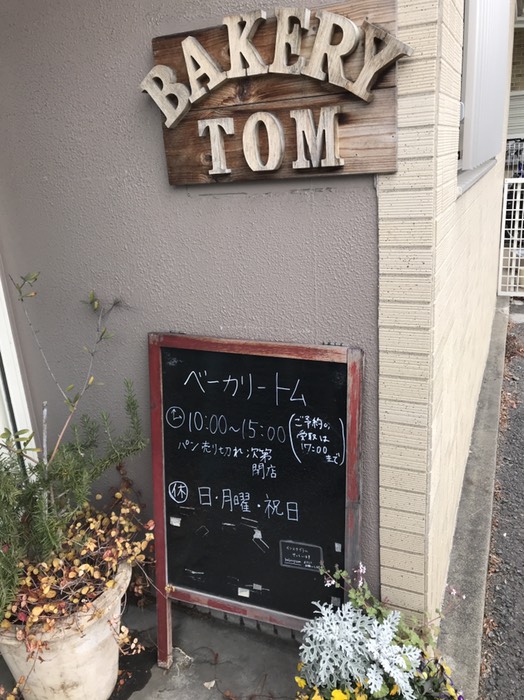 BAKERY
TOM
ベーカリートム
10:00〜15:00 (ご予約の受取は17:00まで)
パン売り切れ次第
閉店
㊡ 日・月曜・祝日